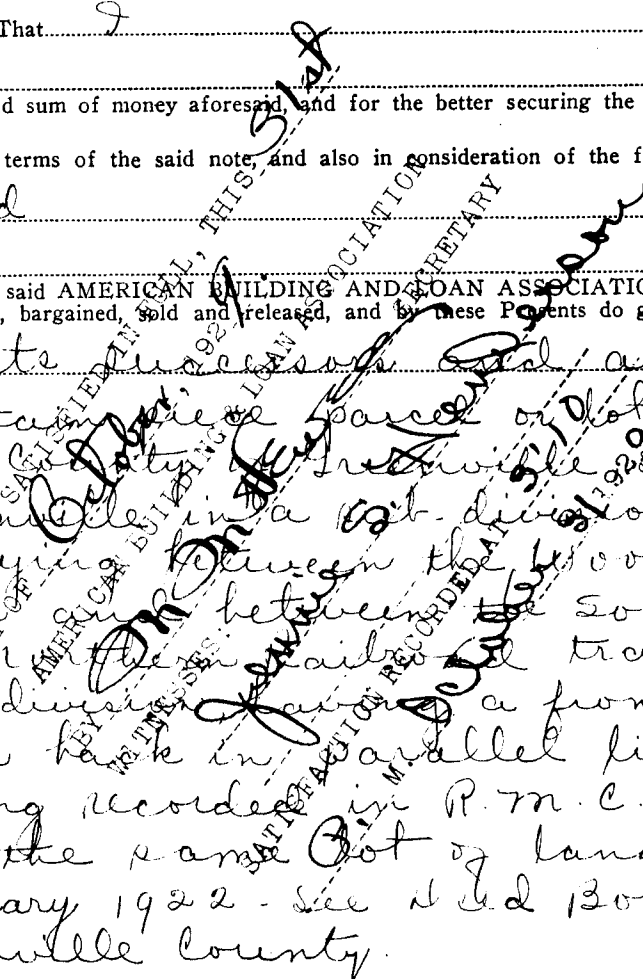 That I
d sum of money aforesaid, and for the better securing the
terms of the said note, and also in consideration of the f
d
said AMERICAN BUILDING AND LOAN ASSOCIATIO
, bargained, sold and released, and by these Presents do g
its successors and a
piece parcel or lot
County Greenville
ville in a sub-division
ying between the Woo
and between the So
railroad tra
division having a fron
back in parallel li
ng recorded in R. M. C.
the same lot of lan
ary 1922 - See Deed Bo
ville County.
SATISFIED IN FULL, THIS 31st
OF October, 1929.
AMERICAN BUILDING & LOAN ASSOCIATION
BY SECRETARY
WITNESSES:
Jennie S.
SATISFACTION RECORDED AT 3:10
P. M. October 31 1929